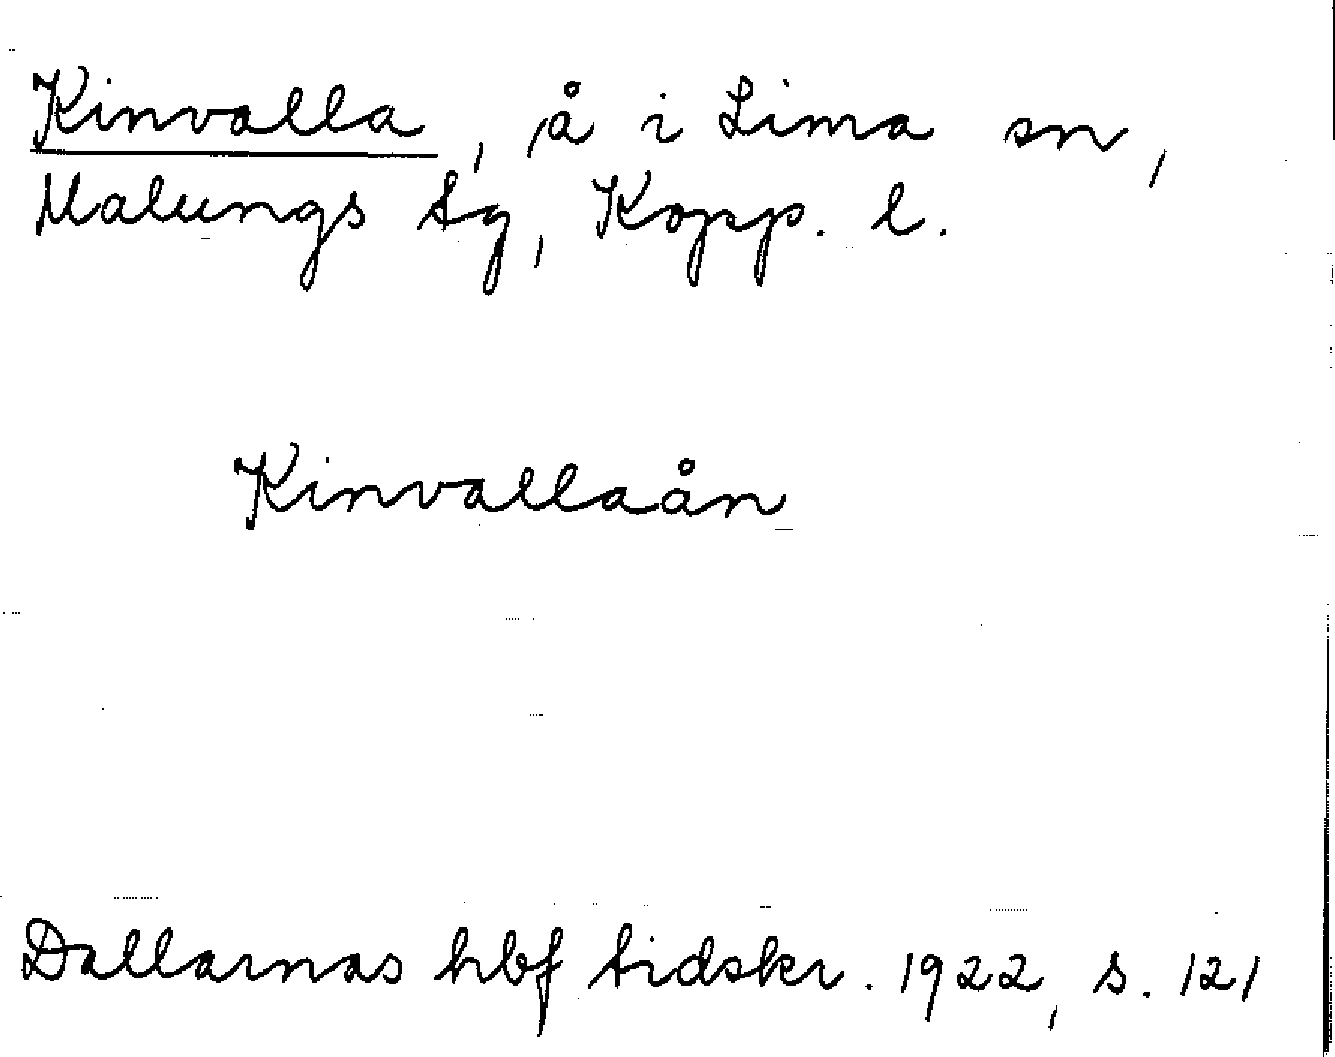 Kinvalla, å i Lima sn,
Malungs tg, Kopp. l.
Kinvallaån
Dallarnas hbf tidskr. 1922, s. 121